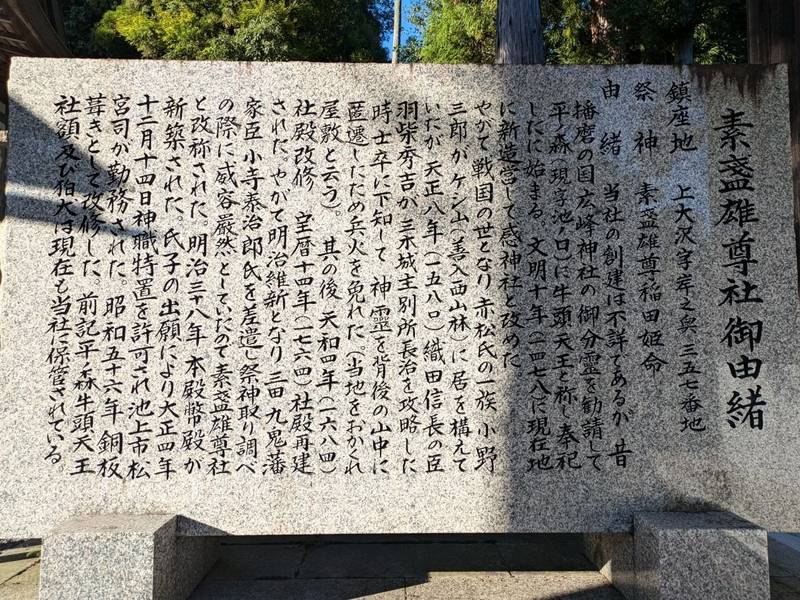 素盞雄尊社御由緒
鎮座地 上大沢字岸之奥三五七番地
祭神 素盞雄尊稲田姫命
由緒 当社の創建は不詳であるが 昔
播磨の国広峰神社の御分霊を勧請して
平ノ森(現字池ノ口)に牛頭天王と称し奉祀
したに始まる 文明十年(一四七八)に現在地
に新造営して感神社と改めた
やがて戦国の世となり赤松氏の一族 小野
三郎、がケシ山(善入西山林)に居を構えて
いたが 天正八年(一五八〇)織田信長の臣
羽柴秀吉が三木城主別所長治を攻略した
時士卒に下知して 神霊を背後の山中に
匿遷したため兵火を免れた(当地をおかくれ
屋敷と云う)。其の後 天和四年(一六八四)
社殿改修 宝暦十四年(一七六四)社殿再建
された。やがて明治維新となり三田九鬼藩
家臣 小寺泰治郎氏を差遣し祭神取り調べ
の際に威容厳然としていたので素盞雄尊社
と改称された。明治三十八年 本殿幣殿が
新築された。氏子の出願により大正四年
十二月十四日神職特置を許可され池上市松
宮司が勤務された。昭和五十六年 銅板
葺きとして改修した 前記平ノ森牛頭天王
社額及び狛犬は現在も当社に保管されている。